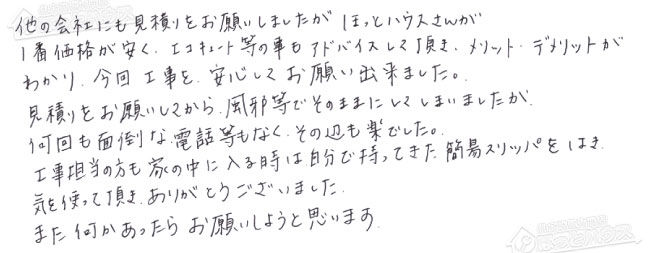 他の会社にも見積りをお願いしましたが ほっとハウスさんが
1番価格が安く、エコキュート等の事もアドバイスして頂き、メリット・デメリットが
わかり、今回工事を、安心してお願い出来ました。
見積りをお願いしてから、風邪等でそのままにしてしまいましたが、
何回も面倒な電話等もなく、その辺も楽でした。
工事担当の方も家の中に入る時は自分で持ってきた簡易スリッパをはき、
気を使って頂き、ありがとうございました。
また何かあったらお願いしようと思います。